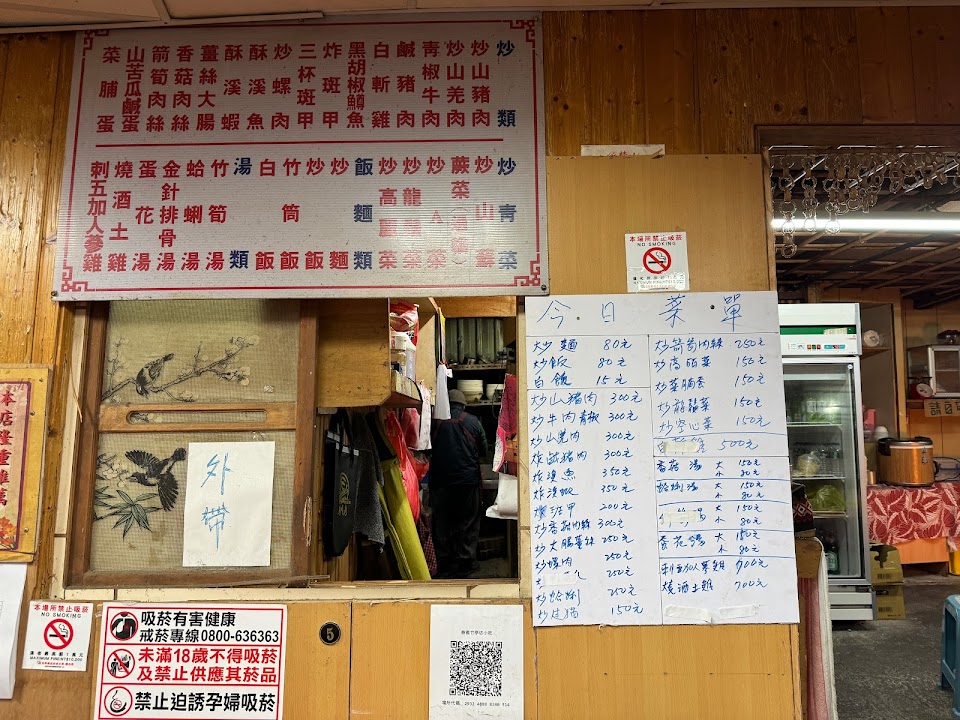 炒類
炒山豬肉
炒山羌肉
青椒牛肉
鹹豬肉
白斬雞
黑胡椒鱒魚
炸斑甲
三杯斑甲
炒螺肉
酥溪魚
酥溪蝦
薑絲大腸
香菇肉絲
箭筍肉絲
山苦瓜鹹蛋
菜脯蛋
炒青菜
炒山蘇
蕨菜
炒A菜
炒龍菜
炒高麗菜
飯麵類
炒麵
炒飯
竹筒飯
白飯
湯類
竹筍湯
蛤蜊湯
金針排骨湯
蛋花湯
燒酒土雞
刺五加人參雞
今日菜單
炒麵 80元
炒飯 80元
白飯 15元
炒山豬肉 300元
炒牛肉青椒 300元
炒山羌肉 300元
炸鹹豬肉 300元
炸溪魚 350元
炸溪蝦 350元
班甲 200元
炒香菇肉絲 300元
炒大腸薑絲 250元
炒螺肉 250元
250元
炒蛤蜊 250元
炒過貓 150元
炒箭筍肉絲 250元
炒高麗菜 150元
炒菜脯蛋 150元
炒龍鬚菜 150元
炒空心菜 150元
白 500元
香菇湯 大 150元
小 80元
蛤蜊湯 大 150元
小 80元
湯 大 150元
小 80元
蛋花湯 大 150元
小 80元
刺五加人蔘雞 700元
燒酒土雞 700元
外帶
本場所禁止吸菸
NO SMOKING
本店隆重
本場所禁止吸菸
NO SMOKING
吸菸有害健康
戒菸專線0800-636363
未滿18歲不得吸菸
及禁止供應其菸品
禁止迫誘孕婦吸菸
5